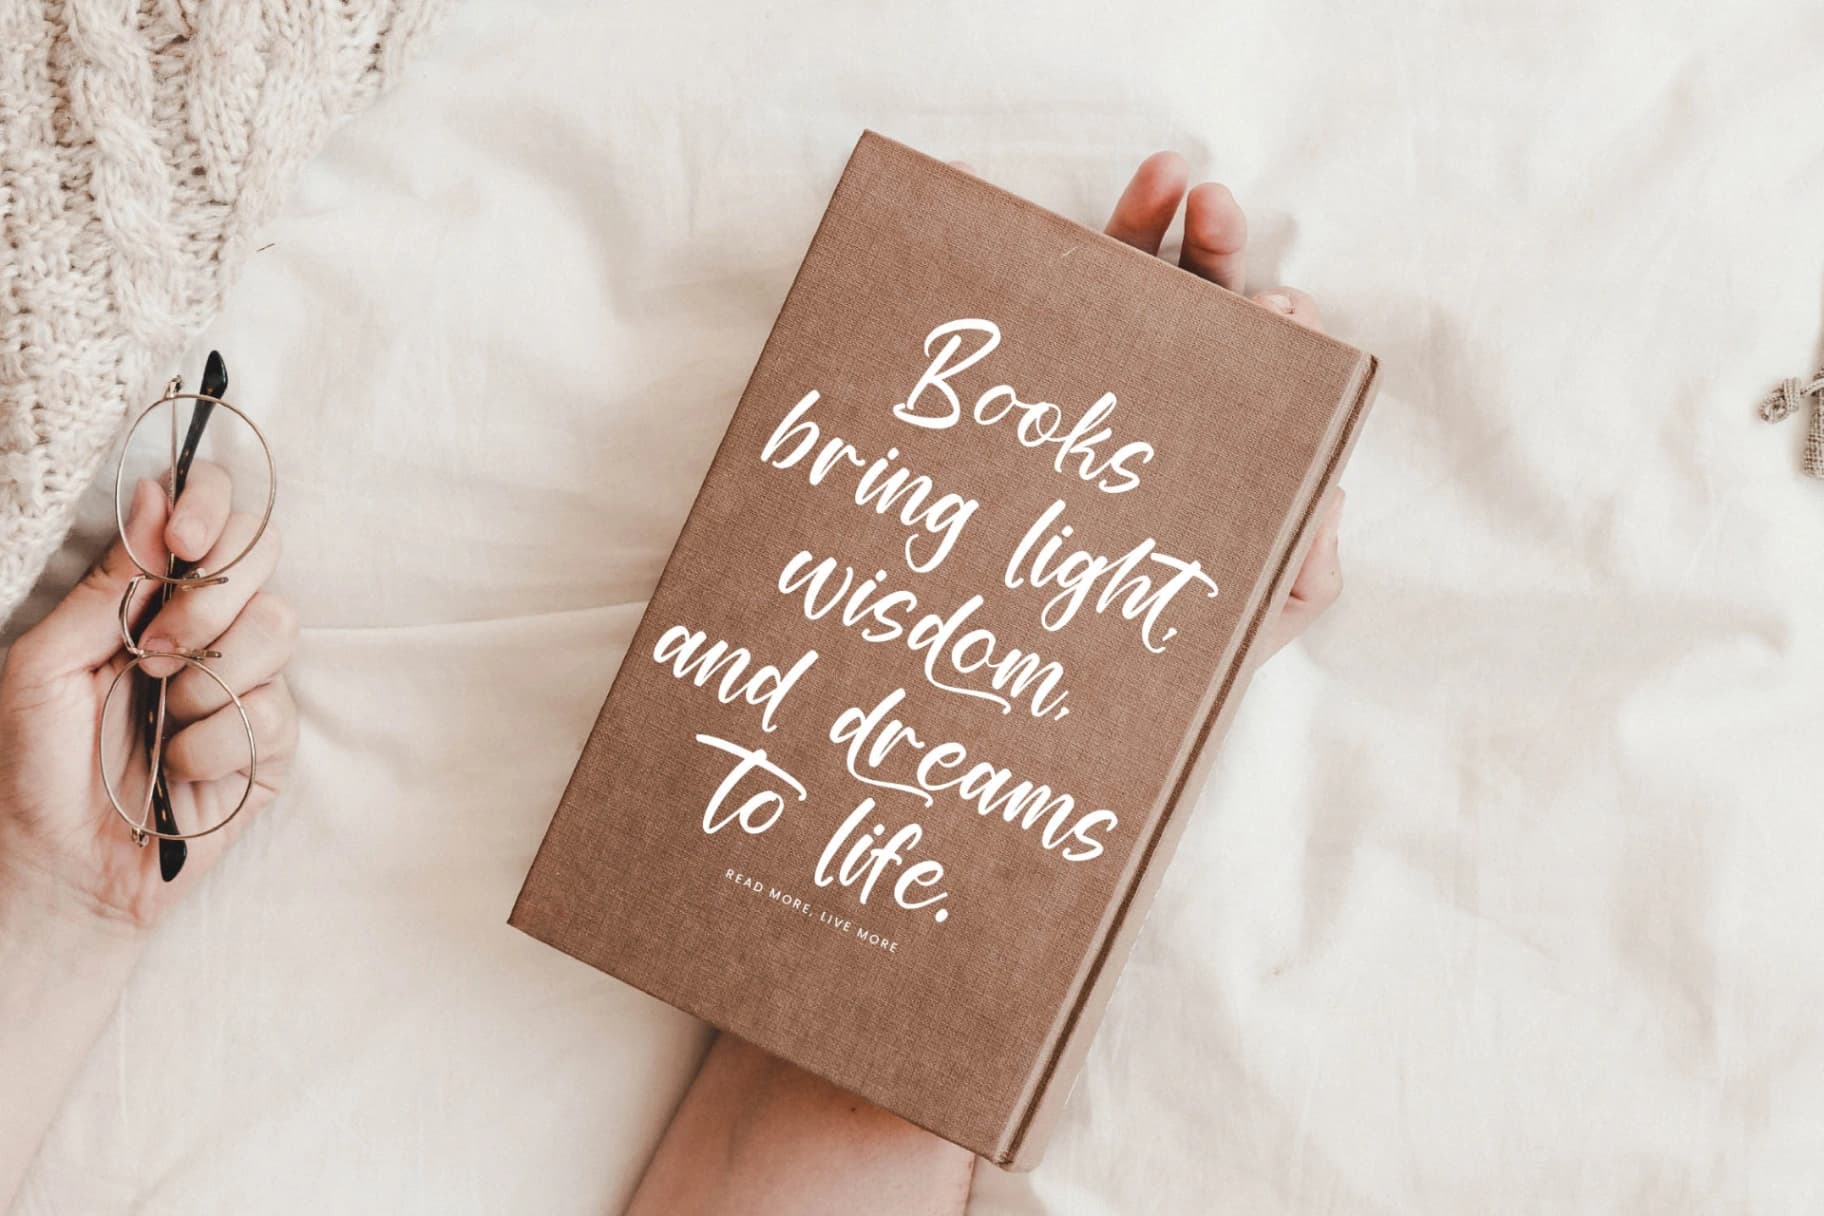 Books
bring light,
wisdom,
and dreams
to life.
READ MORE, LIVE MORE